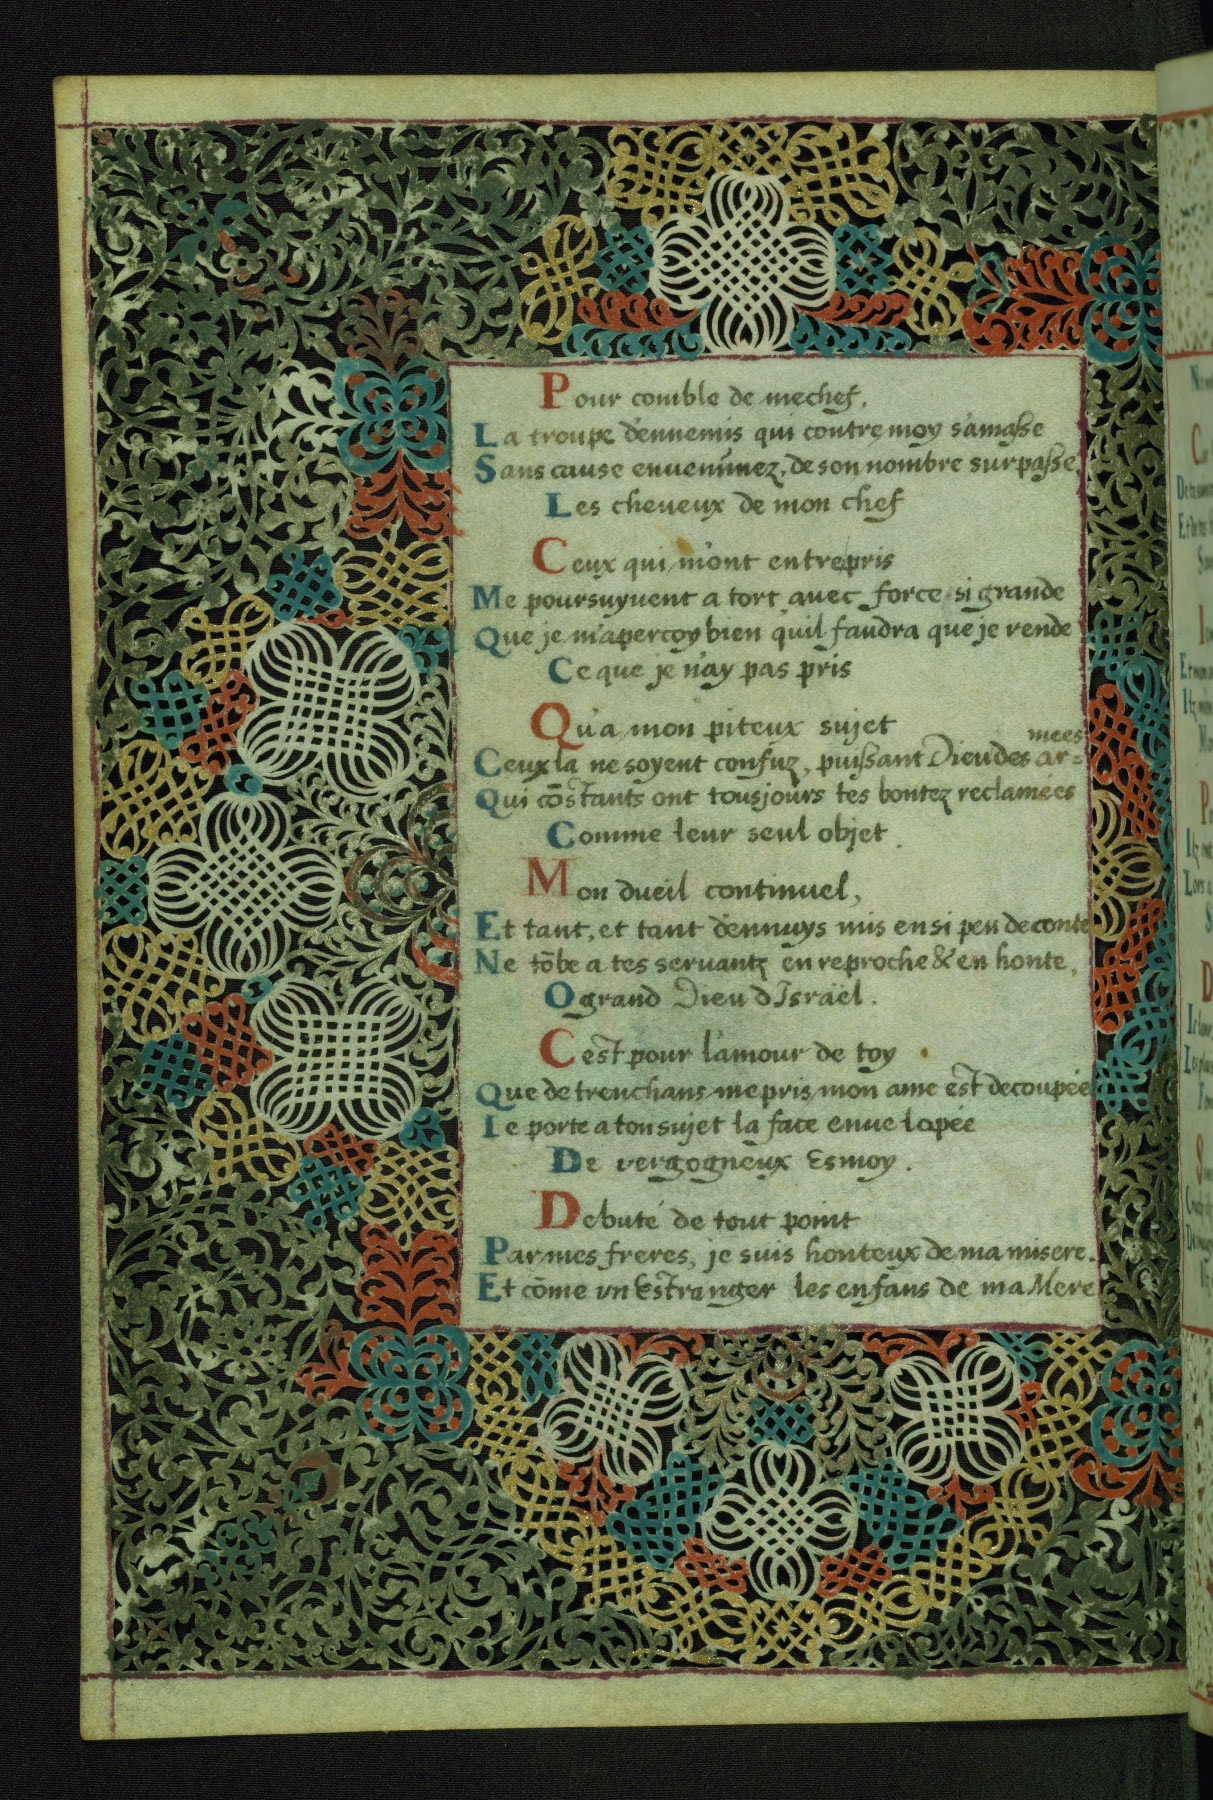 Pour comble de mechef.
La troupe d'ennemis qui contre moy s'amaſse
Sans cause envenimez, de son nombre surpaſse,
Les cheveux de mon chef
Ceux qui m'ont entrepris
Me poursuyuent a tort avec force si grande
Que je m'apercoy bien quil faudra que je rende
Ce que je n'ay pas pris
Qu'a mon piteux sujet
Ceux la ne soyent confuz, puiſsant Dieu des ar=mees
Qui cõstants ont tousjours tes bontez reclamees
Comme leur seul objet.
Mon dueil continuel,
Et tant, et tant d'ennuys mis en si peu de conte
Ne tõbe a tes servantz en reproche & en honte,
O grand Dieu d Israël.
C est pour l'amour de toy
Que de trenchans mepris mon ame est decoupée
Ie porte a ton sujet la face enuelopée
De vergogneux Esmoy.
Debuté de tout point
Par mes freres, je suis honteux de ma misere.
Et cõme un Estranger les enfans de ma Mere